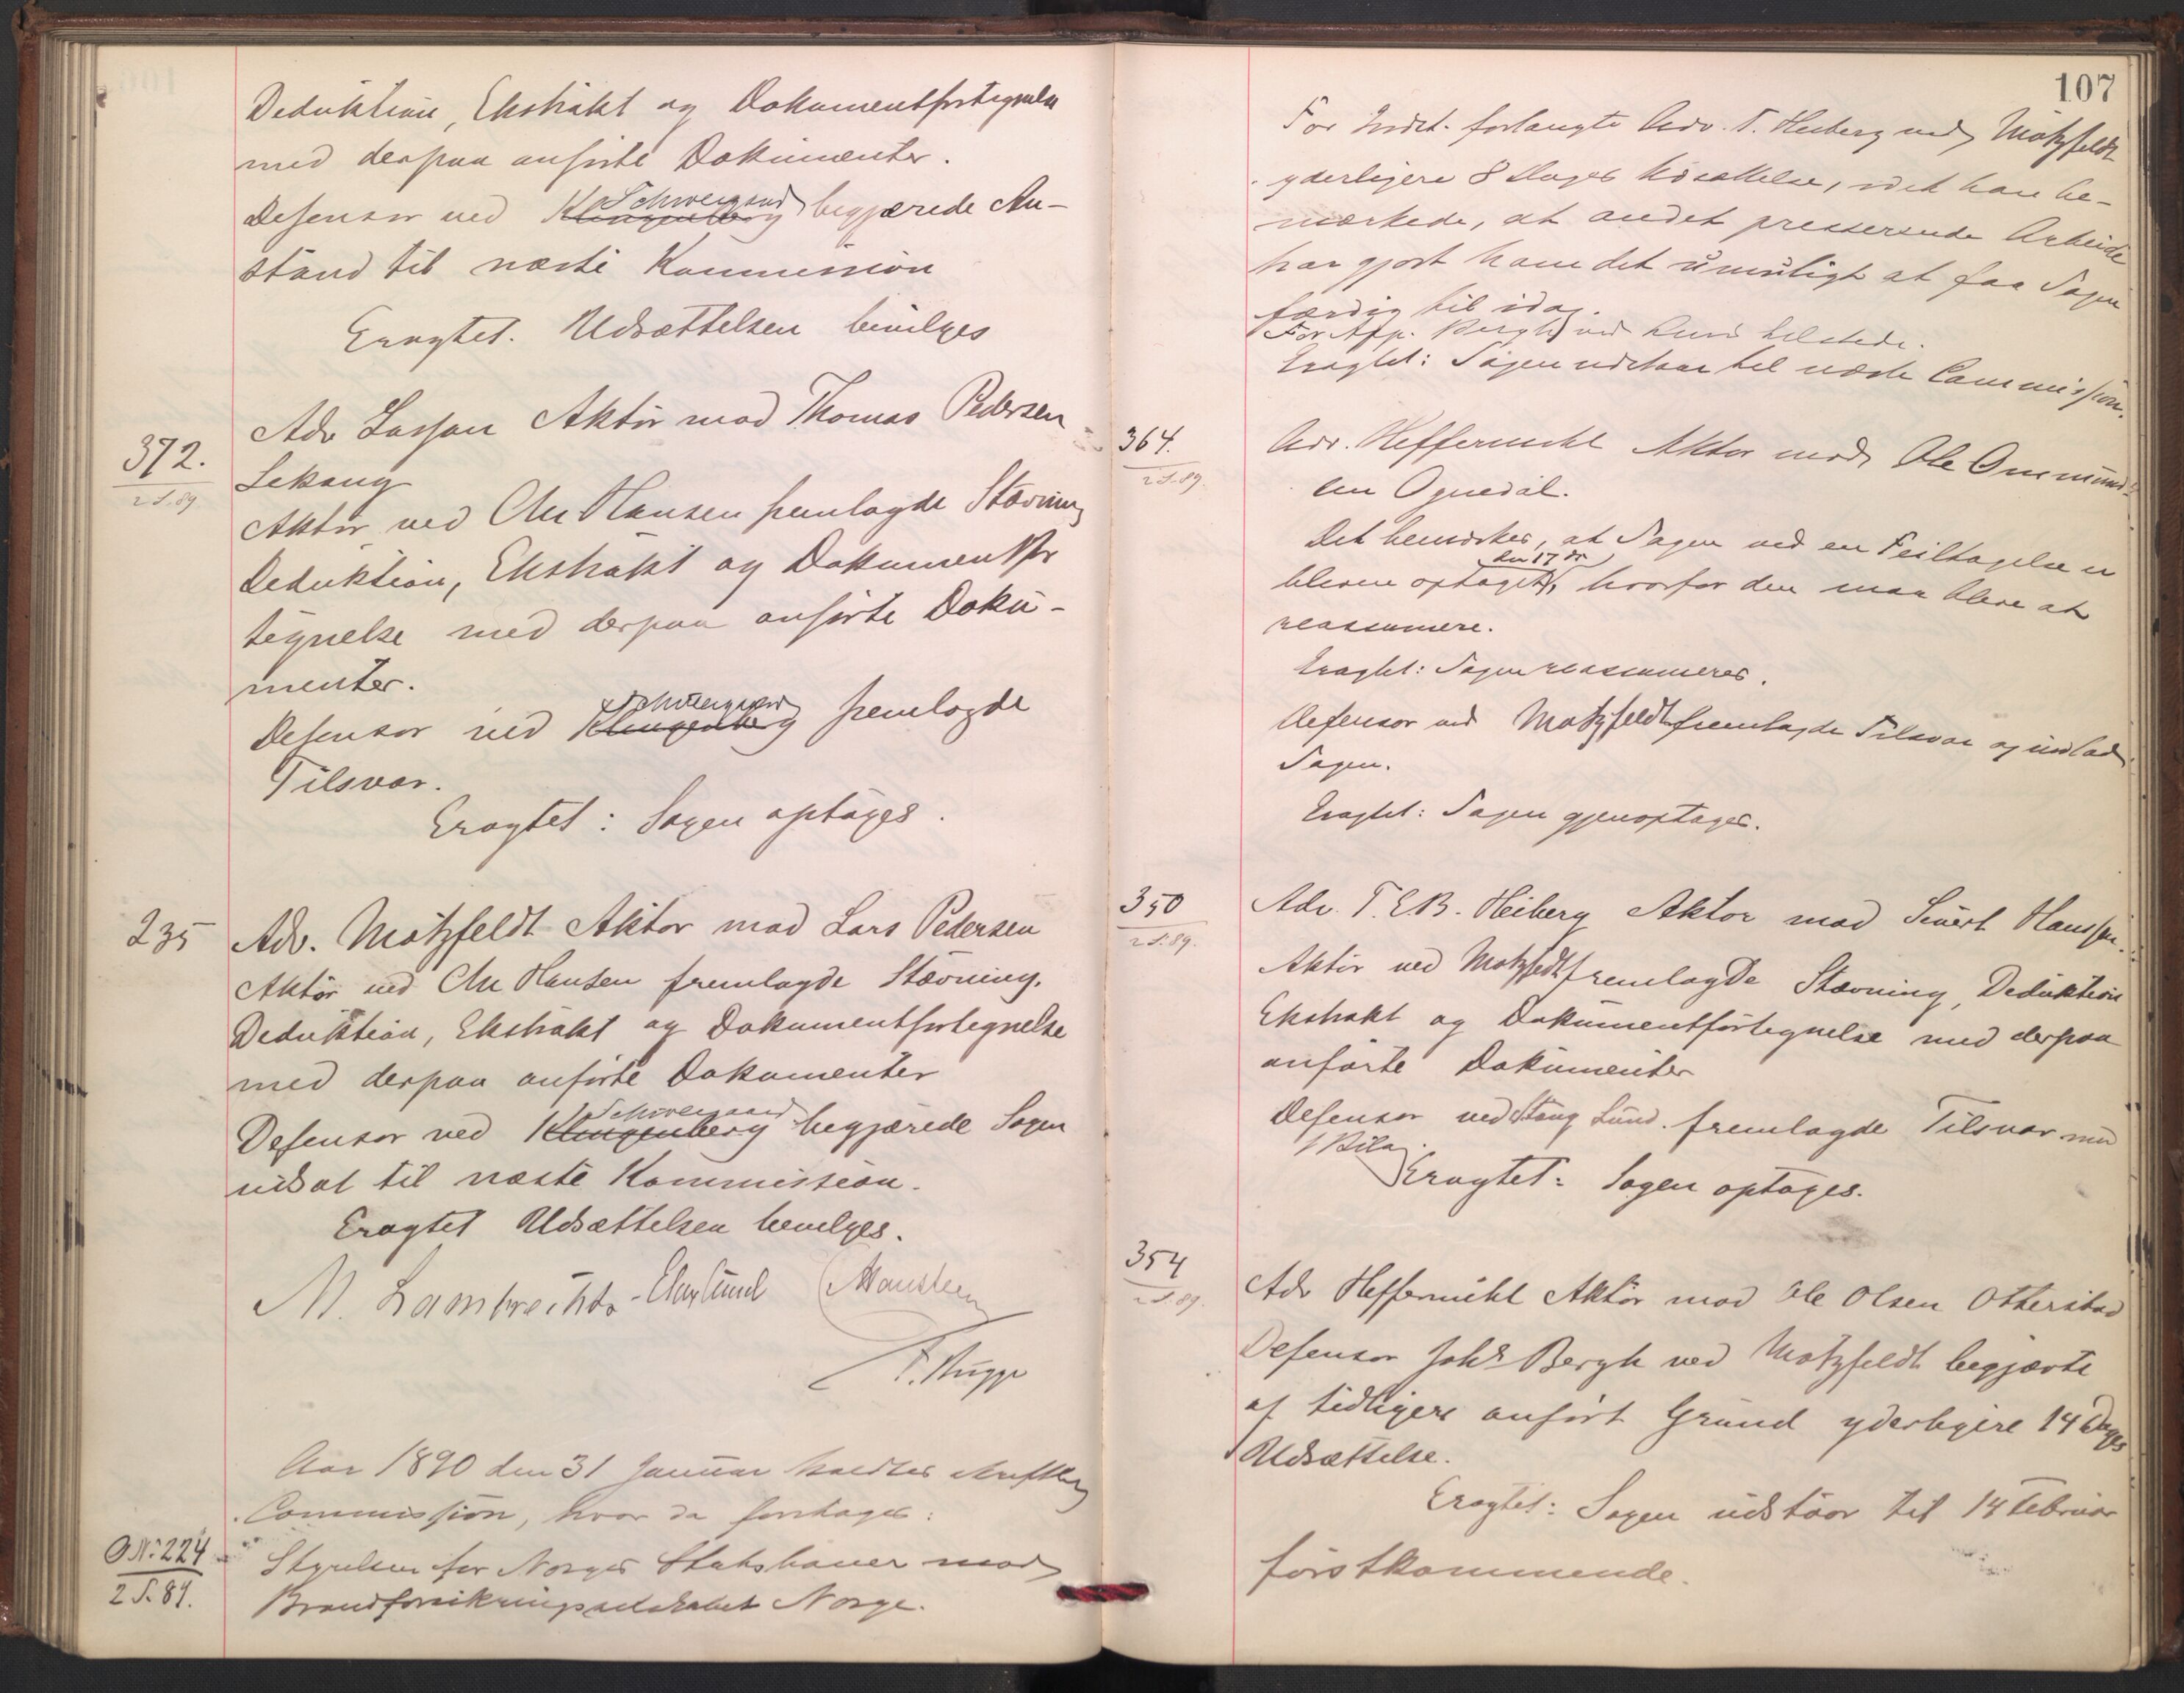 Deduktion, Ekstrakt og Dokumentfortegnelse
med derpaa anførte Dokumenter.
Schweigaard
Defensor ved Klingenberg begjærede An-
stand til næste Kommission
Eragtet. Udsættelsen bevilges
Adv Lasson Aktor mod Thomas Pedersen
372.
2 S. 89
Lekang
Aktor ved Chr Hansen fremlagde Stævning
Deduktion, Ekstrakt og Dokumentfor
tegnelse med derpaa anførte Doku-
menter.
Schweigaard
Defensor ved Klingenberg fremlagde
Tilsvar.
Eragtet: Sagen optages.
235
Adv. Motzfeldt Aktor mod Lars Pedersen
Aktor ved Chr Hansen fremlagde Stævning,
Deduktion, Ekstrakt og Dokumentfortegnelse
med derpaa anførte Dokumenter
Schweigaard
Defensor ved Klingenberg begjærede Sagen
udsat til næste Kommission.
Eragtet Udsættelsen bevilges.
M. Lambrechts
F. Bugge
Aar 1890 den 31 Januar holdtes skriftlig
Commission, hvor da foretoges:
O Nr. 224
2 S. 89.
Styrelsen for Norges Statsbaner mod
Brandforsikringsselskabet Norge.
107
For Indst. forlangte Adv. T. Heiberg ved Motzfeldt
yderligere 8 Dages Udsættelse, idet han be-
mærkede, at andet presserende Arbeide
har gjort ham det umuligt at faa Sagen
færdig til idag.
For App. Bergh ved Lund tilstede.
Eragtet: Sagen udstaar til næste Commission.
364.
2 S. 89.
Adv. Heffermehl Aktor mod Ole Ommund-
sen Ognedal.
Det bemærkes, at Sagen ved en Feiltagelse er
den 17 ds
bleven optaget, hvorfor den maa blive at
reassumere.
Eragtet: Sagen reassumeres.
Defensor ved Motzfeldt fremlagde Tilsvar og indlod
Sagen.
Eragtet: Sagen gjenoptages.
350
2 S. 89.
Adv. T. E. B. Heiberg Aktor mod Sivert Hanssen.
Aktor ved Motzfeldt fremlagde Stævning, Deduktion
Ekstrakt og Dokumentfortegnelse med derpaa
anførte Dokumenter
Defensor ved Stang Lund. fremlagde Tilsvar med
1 Bilag
Eragtet: Sagen optages.
354
2 S. 89.
Adv Heffermehl Aktor mod Ole Olsen Otterstad
Defensor Johs Bergh ved Motzfeldt begjærte
af tidligere anført Grund yderligere 14 Dages
Udsættelse.
Eragtet: Sagen udstaar til 14 Februar
førstkommende.